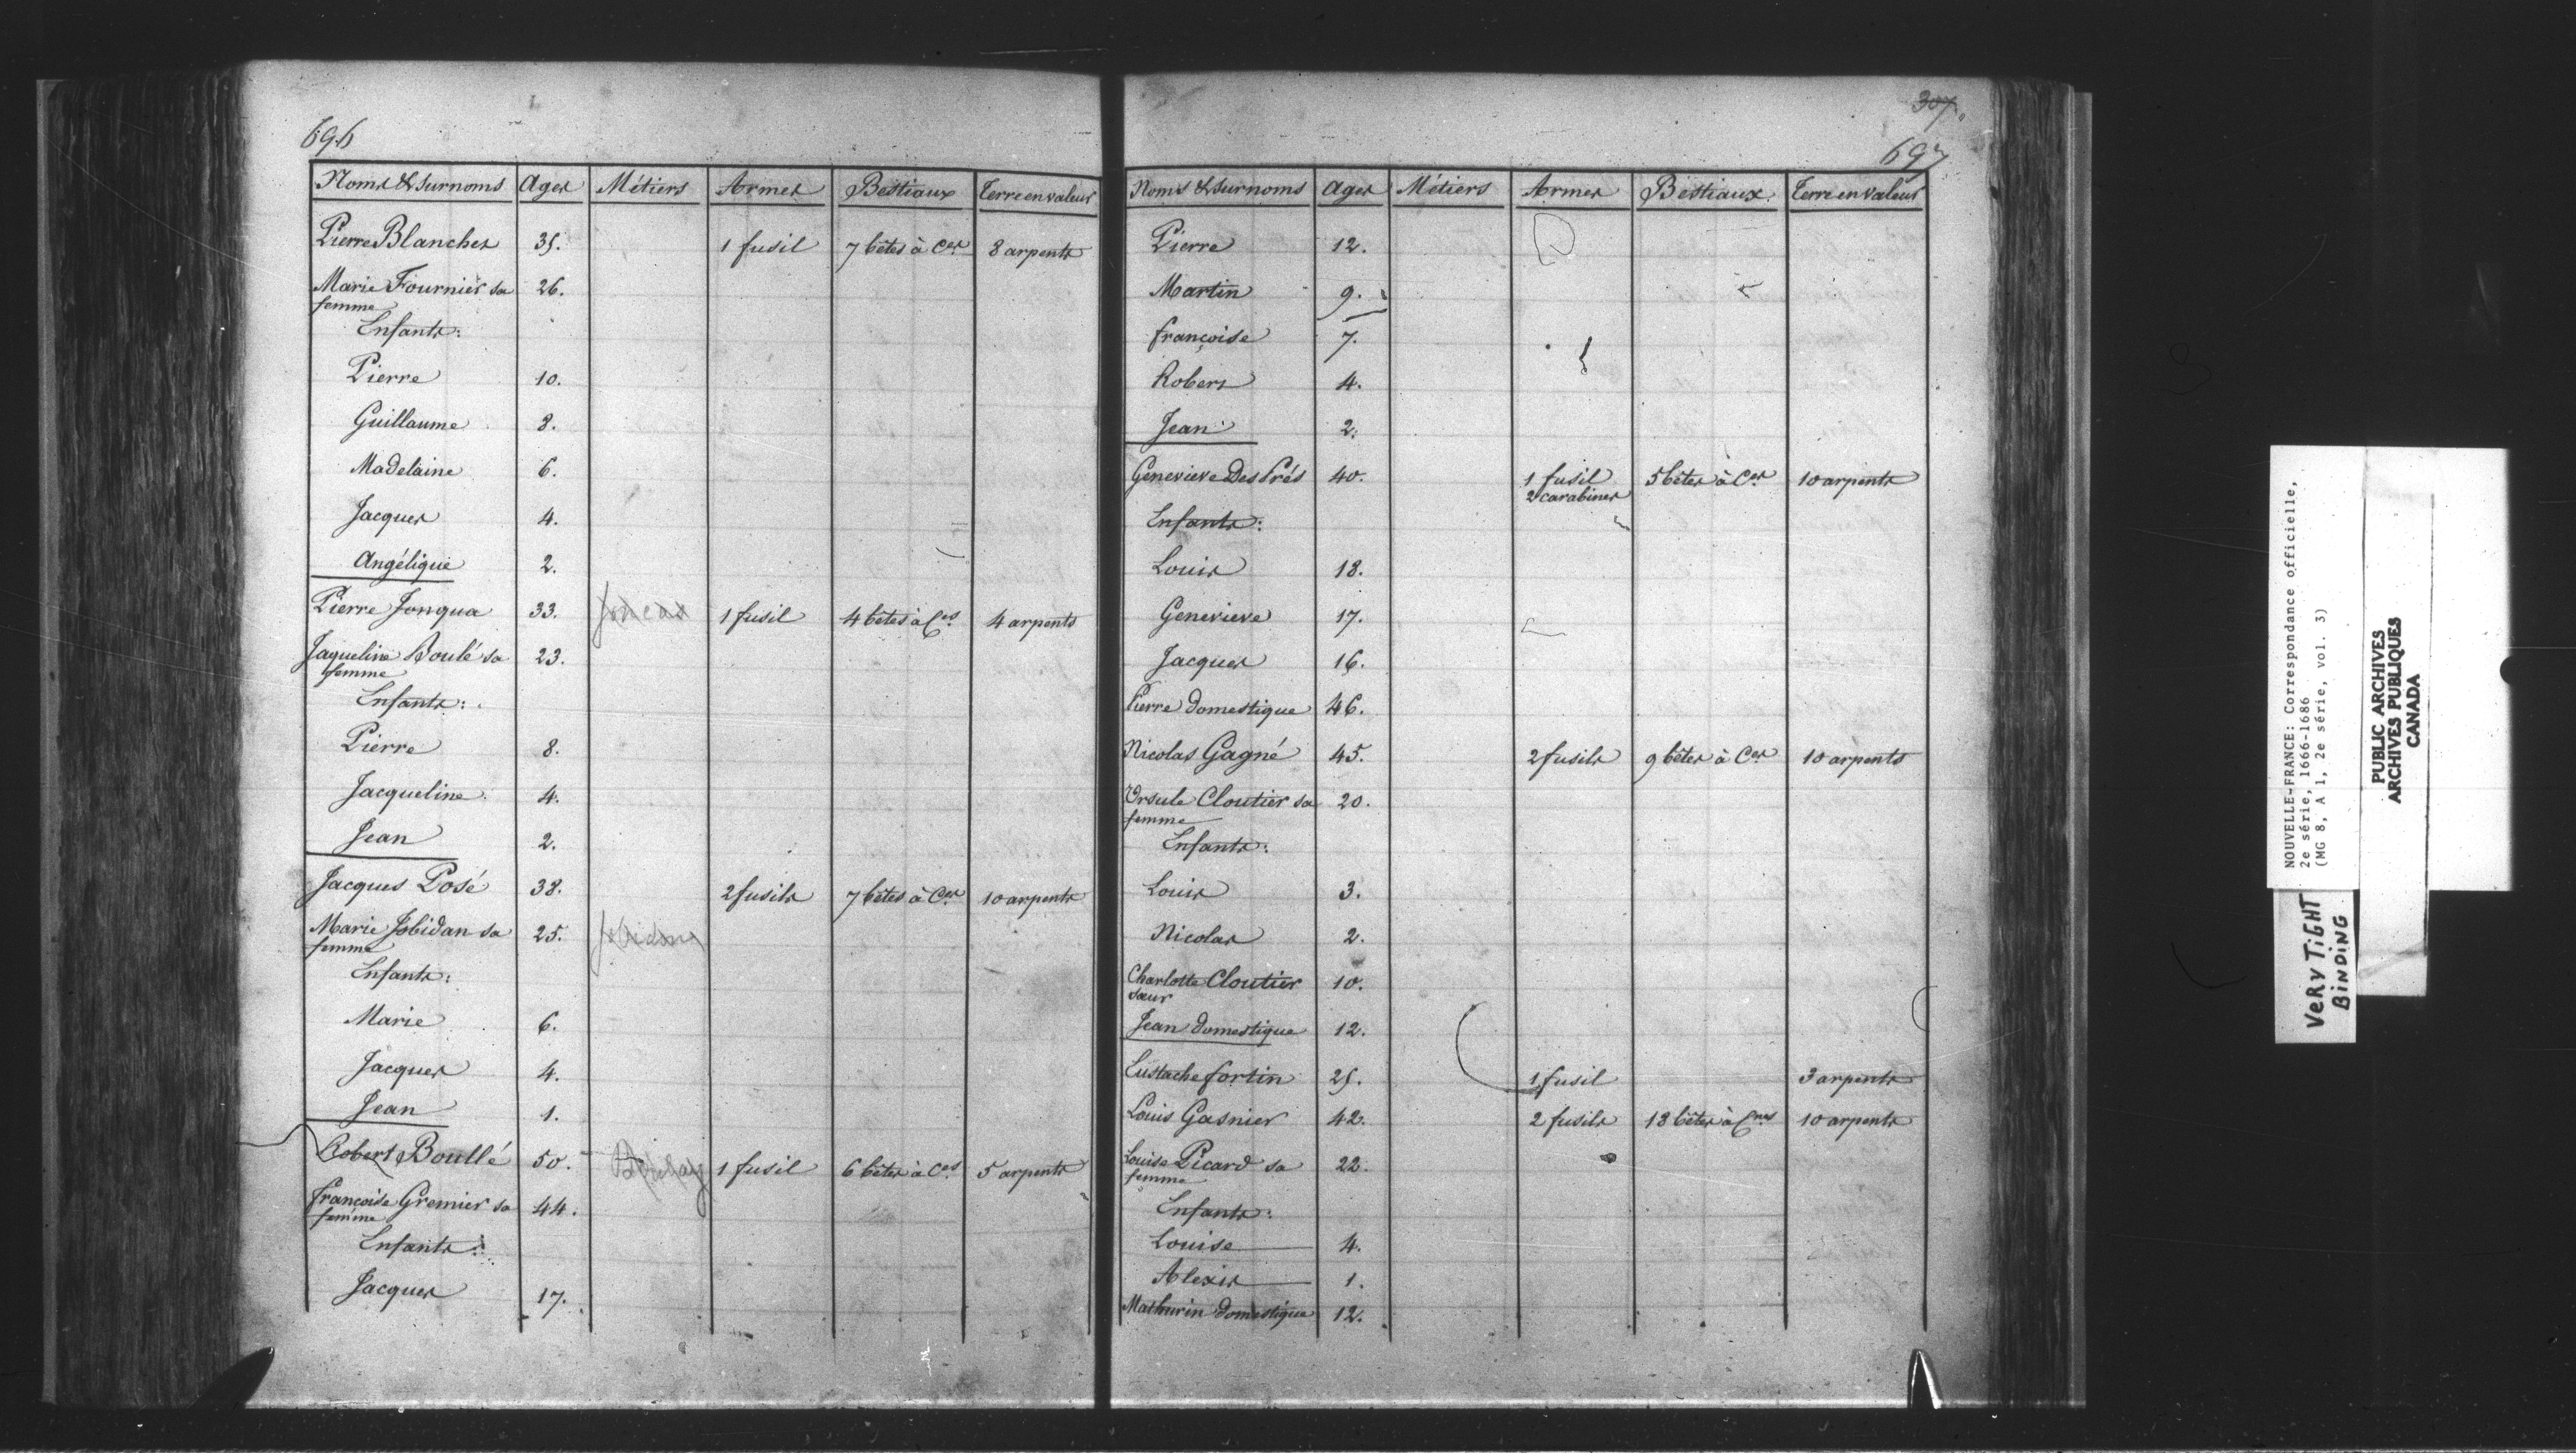 696
Noms & Surnoms Ages Métiers Armes Bestiaux Terre en valeur
Pierre Blanchet 35. 1 fusil 7 bêtes à Ces 8 arpents
Marie Fournier sa 26.
femme
Enfants:
Pierre 10.
Guillaume 8.
Madelaine 6.
Jacques 4.
Angélique 2.
Pierre Jonqua 33. Joncas 1 fusil 4 bêtes à Ces 4 arpents
Jaqueline Boulé sa 23.
femme
Enfants:
Pierre 8.
Jacqueline 4.
Jean 2.
Jacques Posé 38. 2 fusils 7 bêtes à Ces 10 arpents
Marie Jobidan sa 25. Jobidon
femme
Enfants:
Marie 6.
Jacques 4.
Jean 1.
Robert Boullé 50. Boulay 1 fusil 6 bêtes à Ces 5 arpents
françoise Gremier sa 44.
femme
Enfants:
Jacques 17.
307.
697
Noms & Surnoms Ages Métiers Armes Bestiaux Terre en valeur
Pierre 12.
Martin 9.
françoise 7.
Robert 4.
Jean 2.
Genevieve Des Prés 40. 1 fusil 5 bêtes à Ces 10 arpents
2 carabines
Enfants:
Louis 18.
Genevieve 17.
Jacques 16.
Pierre domestique 46.
Nicolas Gagné 45. 2 fusils 9 bêtes à Ces 10 arpents
Ursule Cloutier sa 20.
femme
Enfants:
Louis 3.
Nicolas 2.
Charlotte Cloutier 10.
sœur
Jean domestique 12.
Eustache fortin 25. 1 fusil 3 arpents
Louis Gasnier 42. 2 fusils 18 bêtes à Cnes 10 arpents
Louise Picard sa 22.
femme
Enfants:
Louise 4.
Alexis 1.
Mathurin domestique 12.
NOUVELLE-FRANCE: Correspondance officielle,
2e série, 1666-1686
(MG 8, A 1, 2e série, vol. 3)
VERY TIGHT
BINDING
PUBLIC ARCHIVES
ARCHIVES PUBLIQUES
CANADA